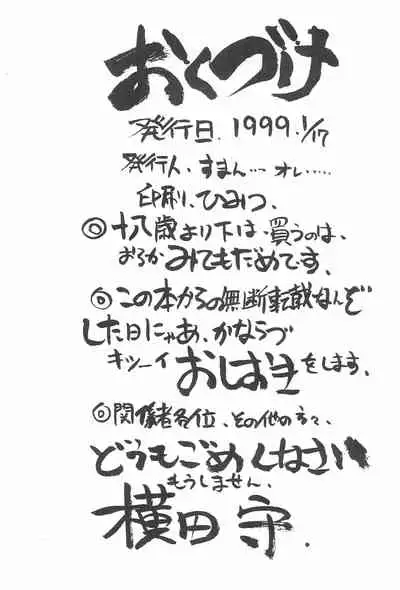 おくづけ
発行日、1999.1/17
発行人、すまん…オレ……
印刷、ひみつ、
◎十八歳より下は、買うのは、
おろかみてもだめです、
◎この本からの無断転載なんぞ
した日にゃあ、かならづ
キツーイおしおきをします、
◎関係者各位、その他の方々、
どうもごめんなさい
もうしません、
横田守.